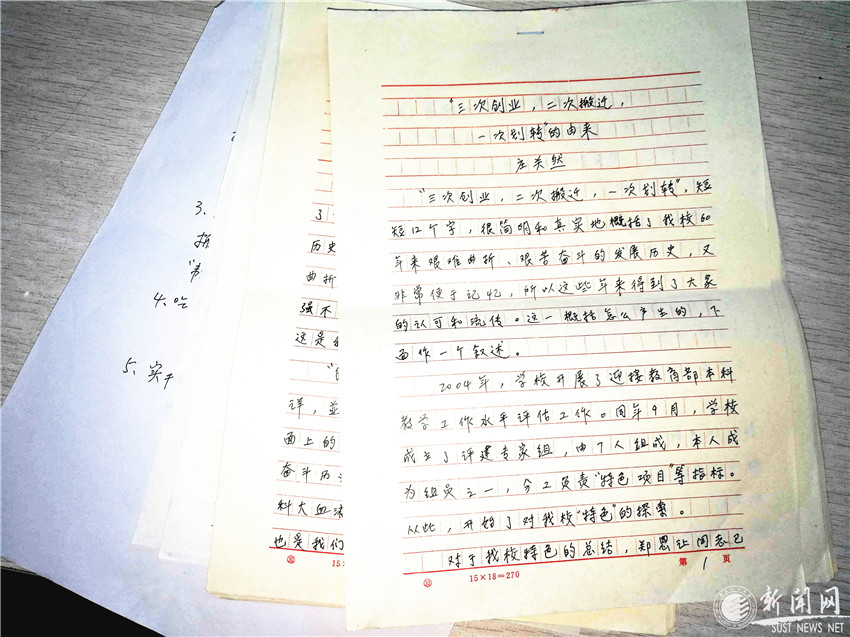 3.
4、吃
5、实干
了
历史
曲折
强不
这是
详，並
面上的
奋斗历
科大血
也是我们
15×
"三次创业，二次搬迁，
一次划转"的由来
庄关然
"三次创业，二次搬迁，一次划转"，短
短12个字，很简明和真实地概括了我校60
年来艰难曲折、艰苦奋斗的发展历史，又
非常便于记忆，所以这些年来得到了大家
的认可和流传。这一概括怎么产生的，下
面作一个叙述。
2004年，学校开展了迎接教育部本科
教学工作水平评估工作。同年9月，学校
成立了评建专家组，由7人组成，本人成
为组员之一，分工负责"特色项目"等指标。
从此，开始了对我校"特色"的探索。
对于我校特色的总结，郑恩让同志已
15×18=270
第1页
新闻网
SUST NEWS NET